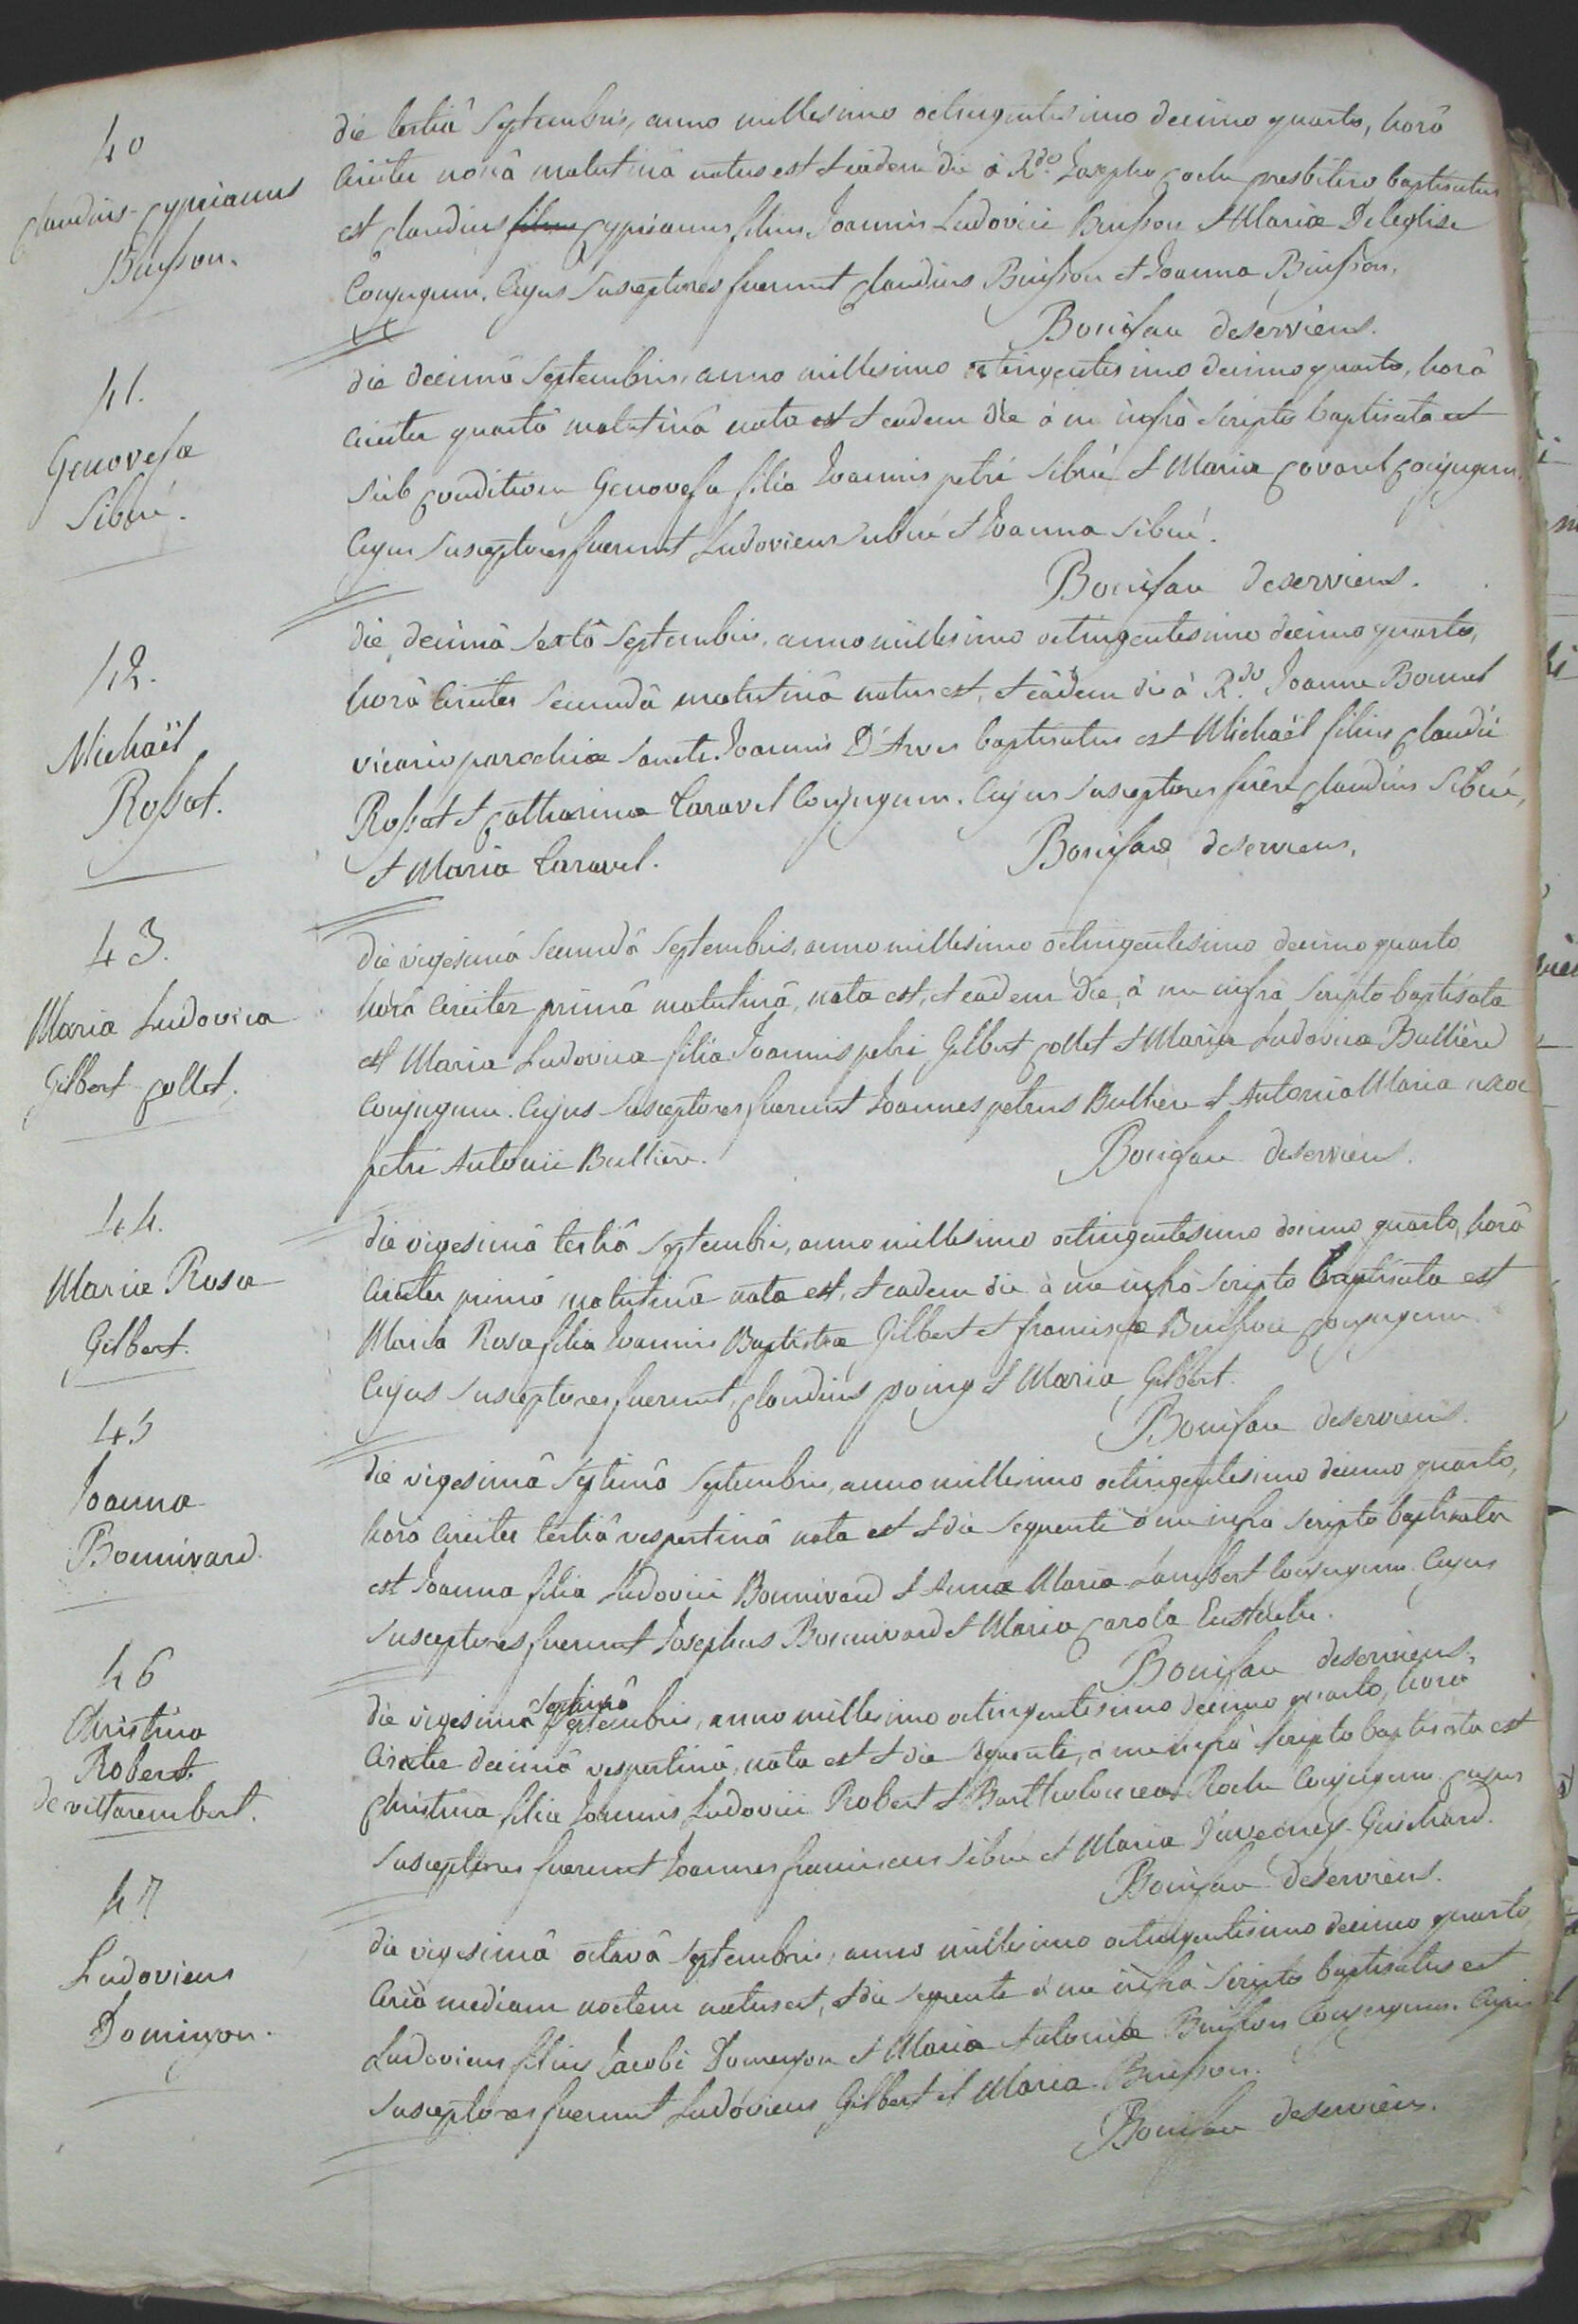 40
Claudius Cyprianus
Buisson.
die tertiâ Septembris, anno millesimo octingentesimo decimo quarto, horâ
Circiter nonâ matutinâ natus est et eâdem die à Rdo. Josepho Coche presbitero baptisatus
est Claudius Cyprianus filius Joannis Ludovici Buisson et Maria Deleglise
Conjugum. Cujus Susceptores fuerunt Claudius Buisson et Joanna Buisson.
Boniface deserviens.
41.
Genovefa
Sibué.
die decimâ Septembris, anno millesimo octingentesimo decimo quarto, horâ
Circiter quartâ matutinâ nata est et eadem die à me infrà scripto baptisata est
sub conditione Genovefa filia Joannis petri Sibué et Maria Covarel Conjugum.
Cujus Susceptores fuerunt Ludovicus Sibué et Joanna Sibué.
Boniface deserviens.
42.
Michaël
Rossat.
die decimâ Sextâ Septembris, anno millesimo octingentesimo decimo quarto,
horâ Circiter Secundâ matutinâ natus est, et eâdem die à Rdo. Joanne Bonnel
vicario parochiæ Sancti Joannis D'Arves baptisatus est Michaël filius Claudii
Rossat et Catharina Caravel Conjugum. Cujus Susceptores fuêre Claudius Sibué,
et Maria Caravel.
Boniface deserviens,
43.
Maria Ludovica
Gilbert Collet.
die vigesimâ Secundâ Septembris, anno millesimo octingentesimo decimo quarto
horâ Circiter primâ matutinâ, nata est, et eâdem die, à me infrà scripto baptisata
est Maria Ludovica filia Joannis petri Gilbert Collet et Maria Ludovica Bullière
Conjugum. Cujus Susceptores fuerunt Joannes petrus Bulliere et Antonia Maria uxor
petri Antonii Bullière.
Boniface deserviens.
44.
Maria Rosa
Gilbert.
die vigesimâ tertiâ Septembris, anno millesimo octingentesimo decimo quarto, horâ
Circiter primâ matutinâ nata est, et eadem die à me infrà scripto baptisata est
Maria Rosa filia Joannis Baptistæ Gilbert et franciscæ Buisson Conjugum.
Cujus Susceptores fuerunt, Claudius poing et Maria Gilbert.
Boniface deserviens.
45
Joanna
Bonnivard.
die vigesimâ Septimâ Septembris, anno millesimo octingentesimo decimo quarto,
horâ Circiter tertiâ vespertinâ nata est et die sequenti à me infrà scripto baptisata
est Joanna filia Ludovici Bonnivard et Anna Maria Lambert Conjugum. Cujus
Susceptores fuerunt Josephus Bonnivard et Maria Carola Eustache.
Boniface deserviens,
46
Christina
Robert
de villarembert.
Septimâ
die vigesimâ Septembris, anno millesimo octingentesimo decimo quarto, horâ
Circiter decimâ vespertinâ, nata est et die sequenti, à me infrà scripto baptisata est
Christina filia Joannis Ludovici Robert et Bartholomea Roche Conjugum. Cujus
Susceptores fuerunt Joannes franciscus Sibué et Maria Guichard.
Boniface deserviens.
47
Ludovicus
Domingon.
die vigesimâ octavâ Septembris, anno millesimo octingentesimo decimo quarto
Circà mediam noctem natus est, et die sequenti à me infrà scripto baptisatus est
Ludovicus filius Jacobi Domengon et Maria Antonia Buisson Conjugum. Cujus
Susceptores fuerunt Ludovicus Gilbert et Maria Buisson.
Boniface deserviens.